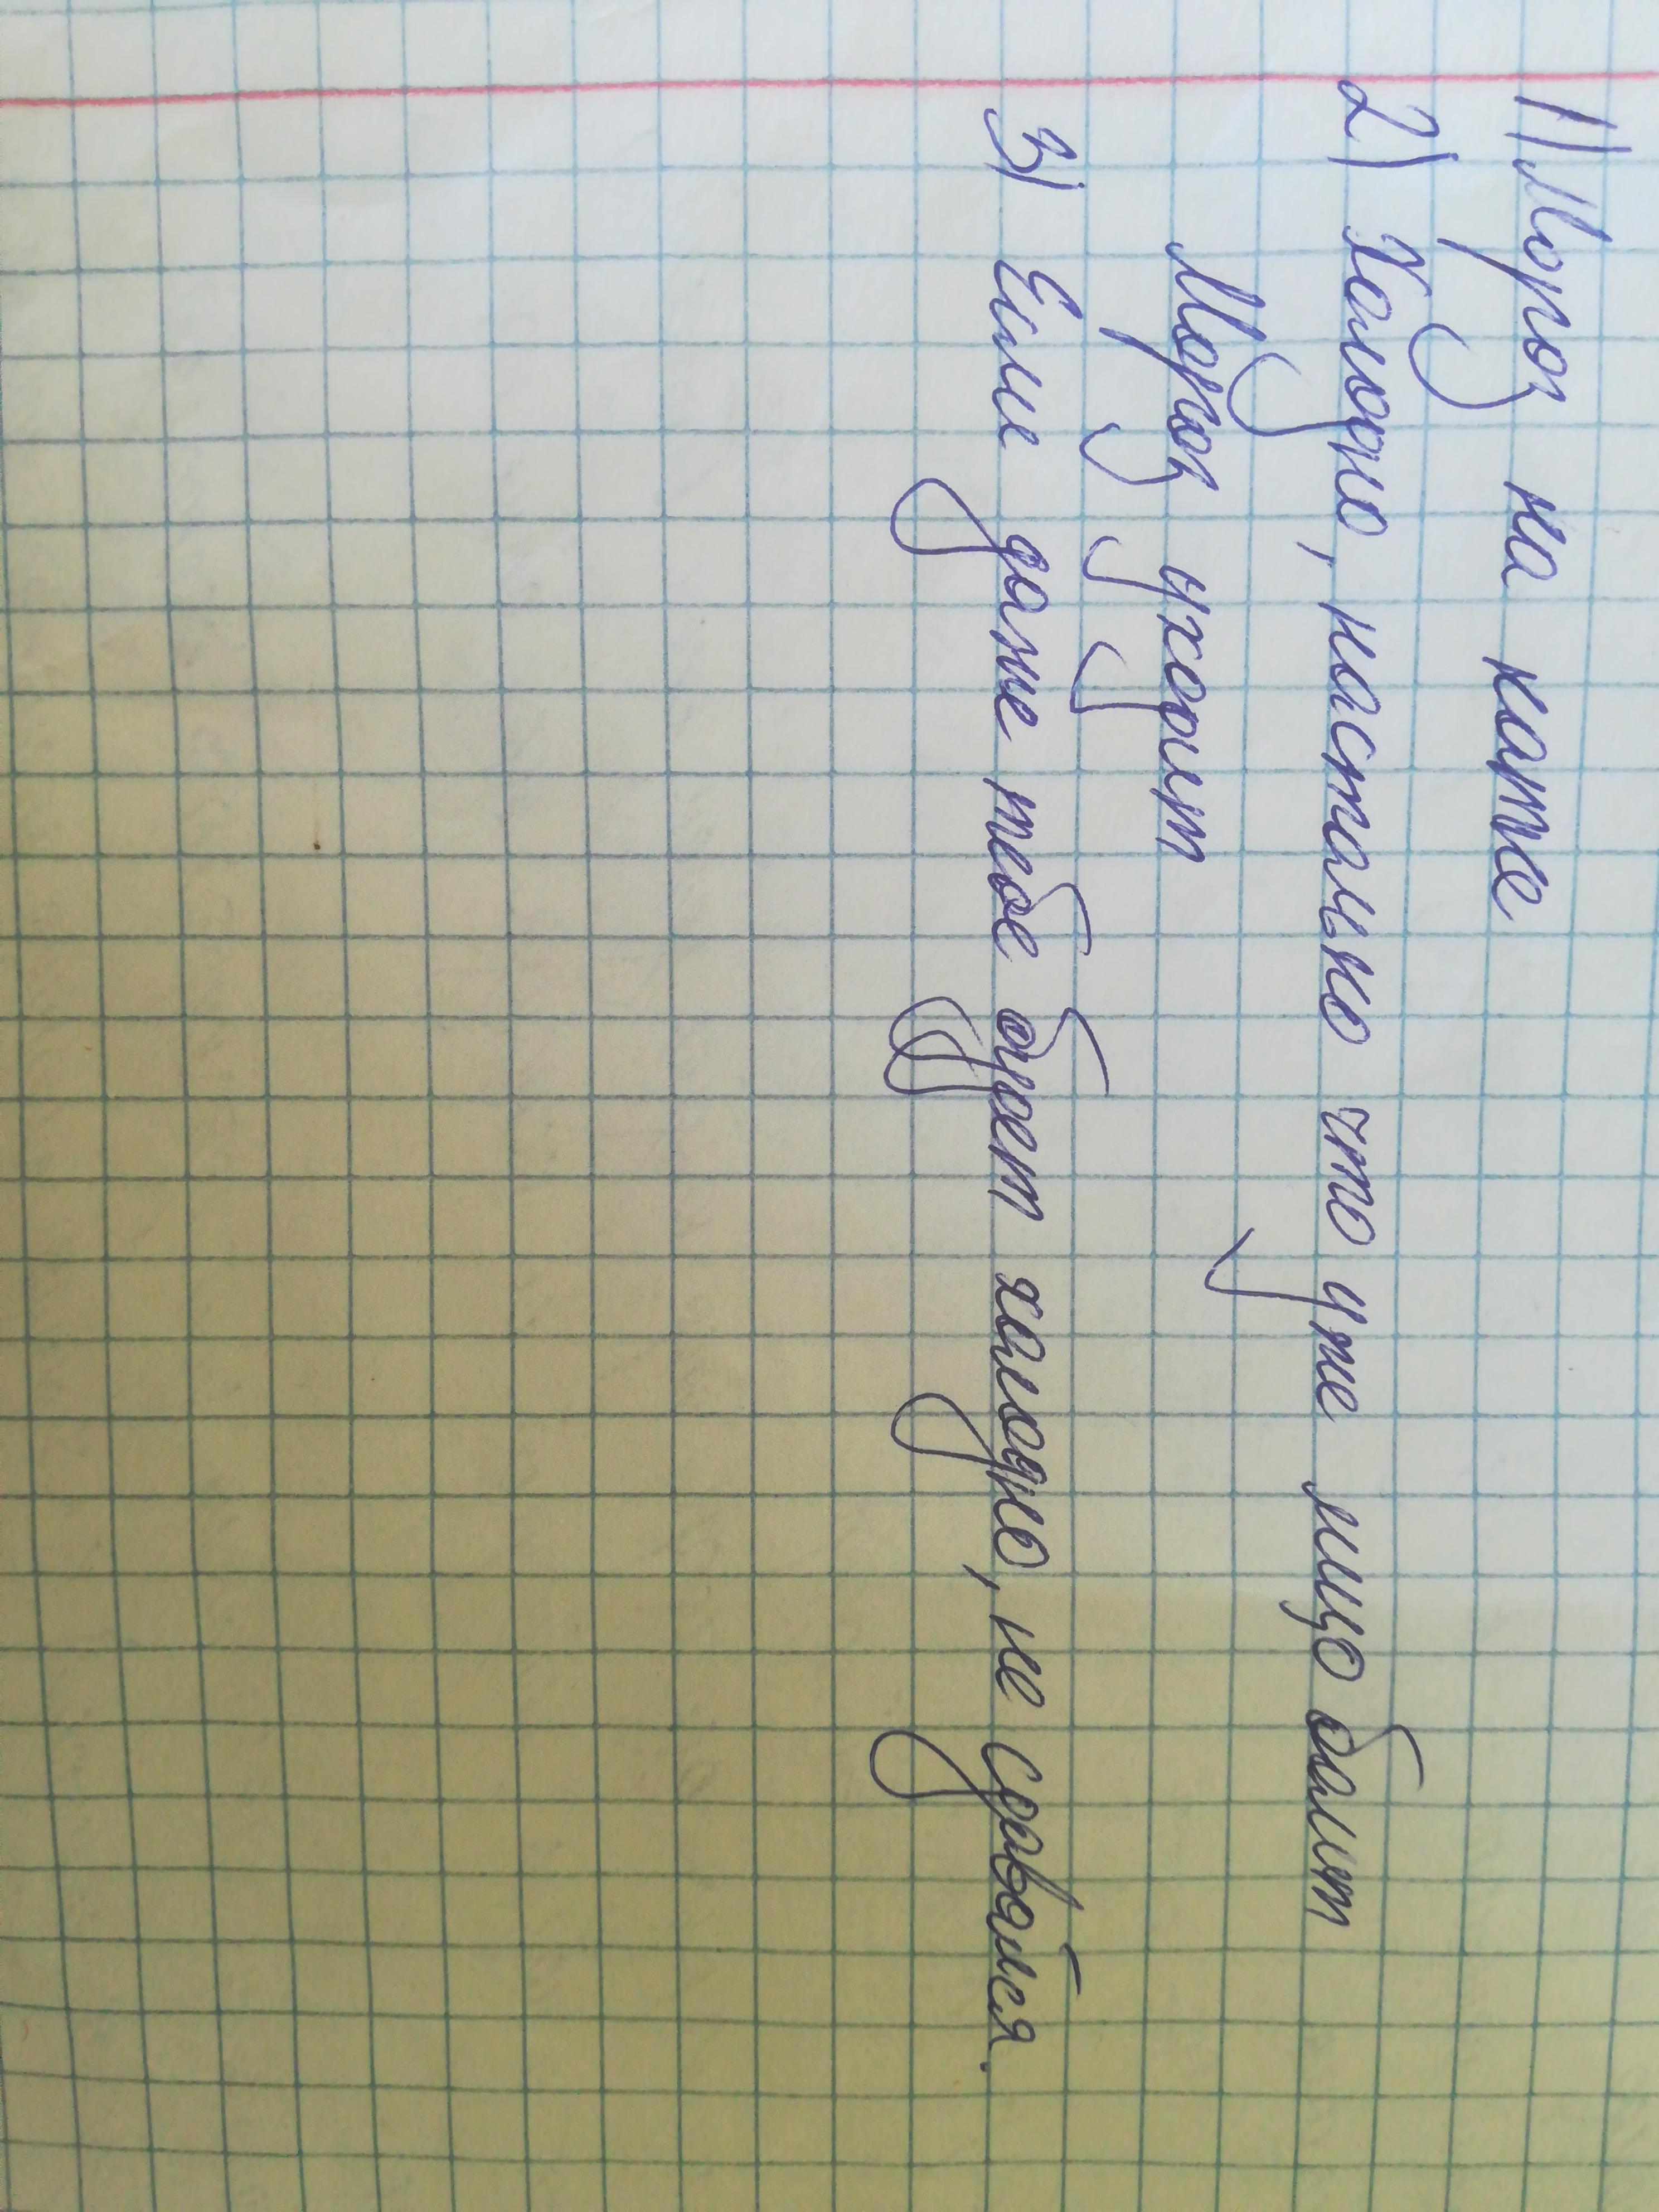 1) Мороз на катке
2) Холодно, настолько что уже лицо болит
Мороз уходит
3) Если даже тебе будет холодно, не сдавайся.